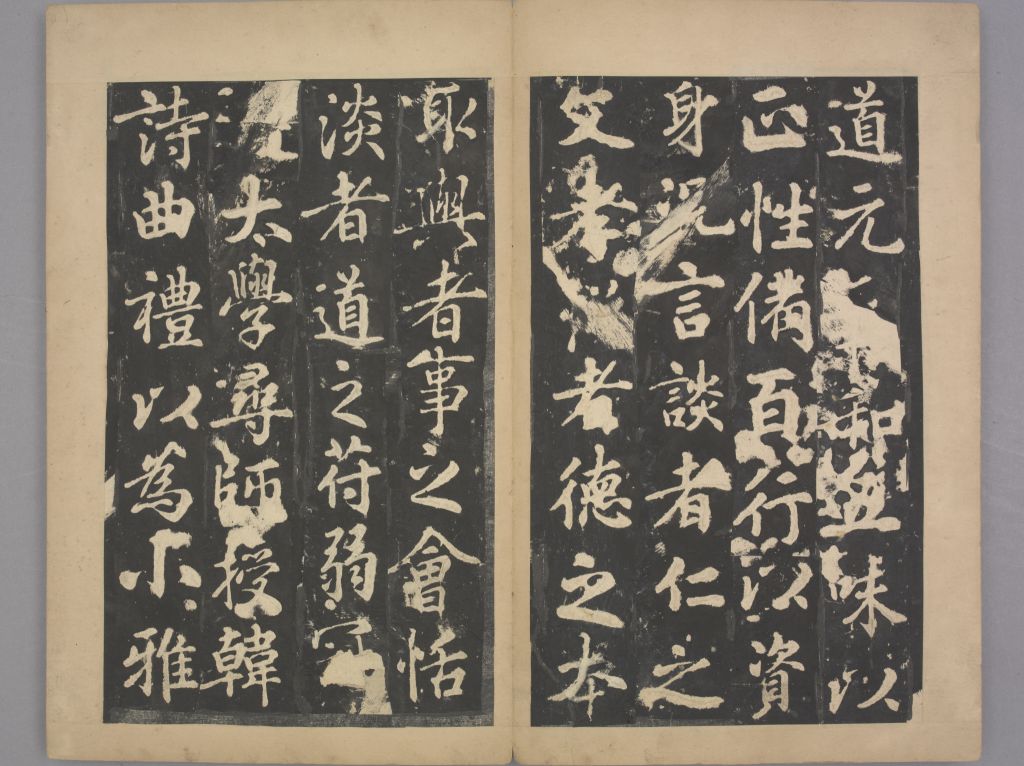 道元和無味以
正性備百行以資
身況言談者仁之
文孝者德之本
取與者事之會恬
淡者道之苻弱冠
太學尋師授韓
詩曲禮以為小雅